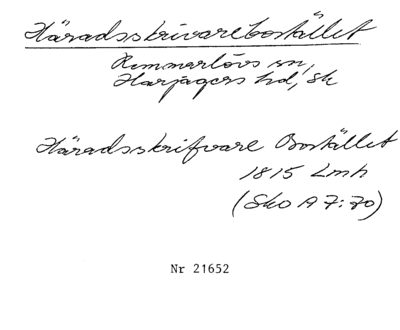 Häradsskrivarebostället
Remmarlövs sn,
Harjagers hd, Sk
Häradsskrifvare Bostället
1815 Lmh
(Sko A 7:70)
Nr 21652